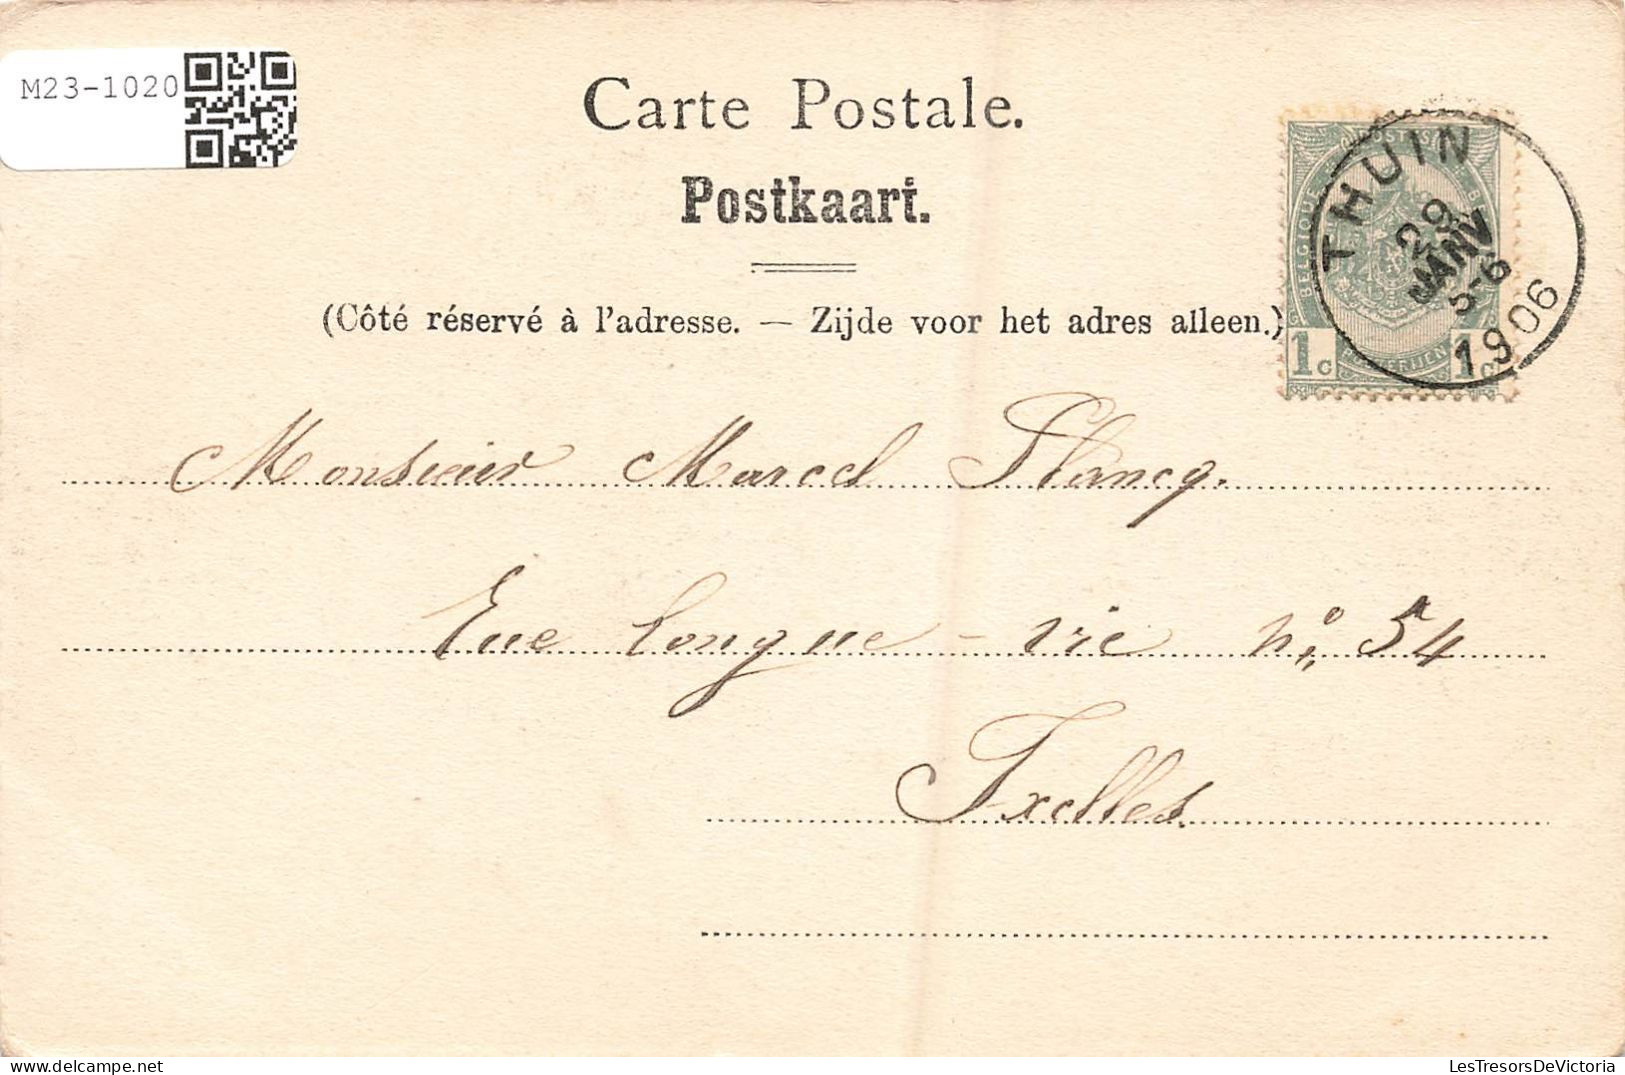 M23-1020
Carte Postale.
Postkaart.
(Côté réservé à l'adresse. — Zijde voor het adres alleen.)
BELGIQUE
1c 1c
THUIN
29
JANV
5-6
1906
Monsieur Marcel Plancq.
Rue Longue-vie No 54
Ixelles
LesTresorsDeVictoria